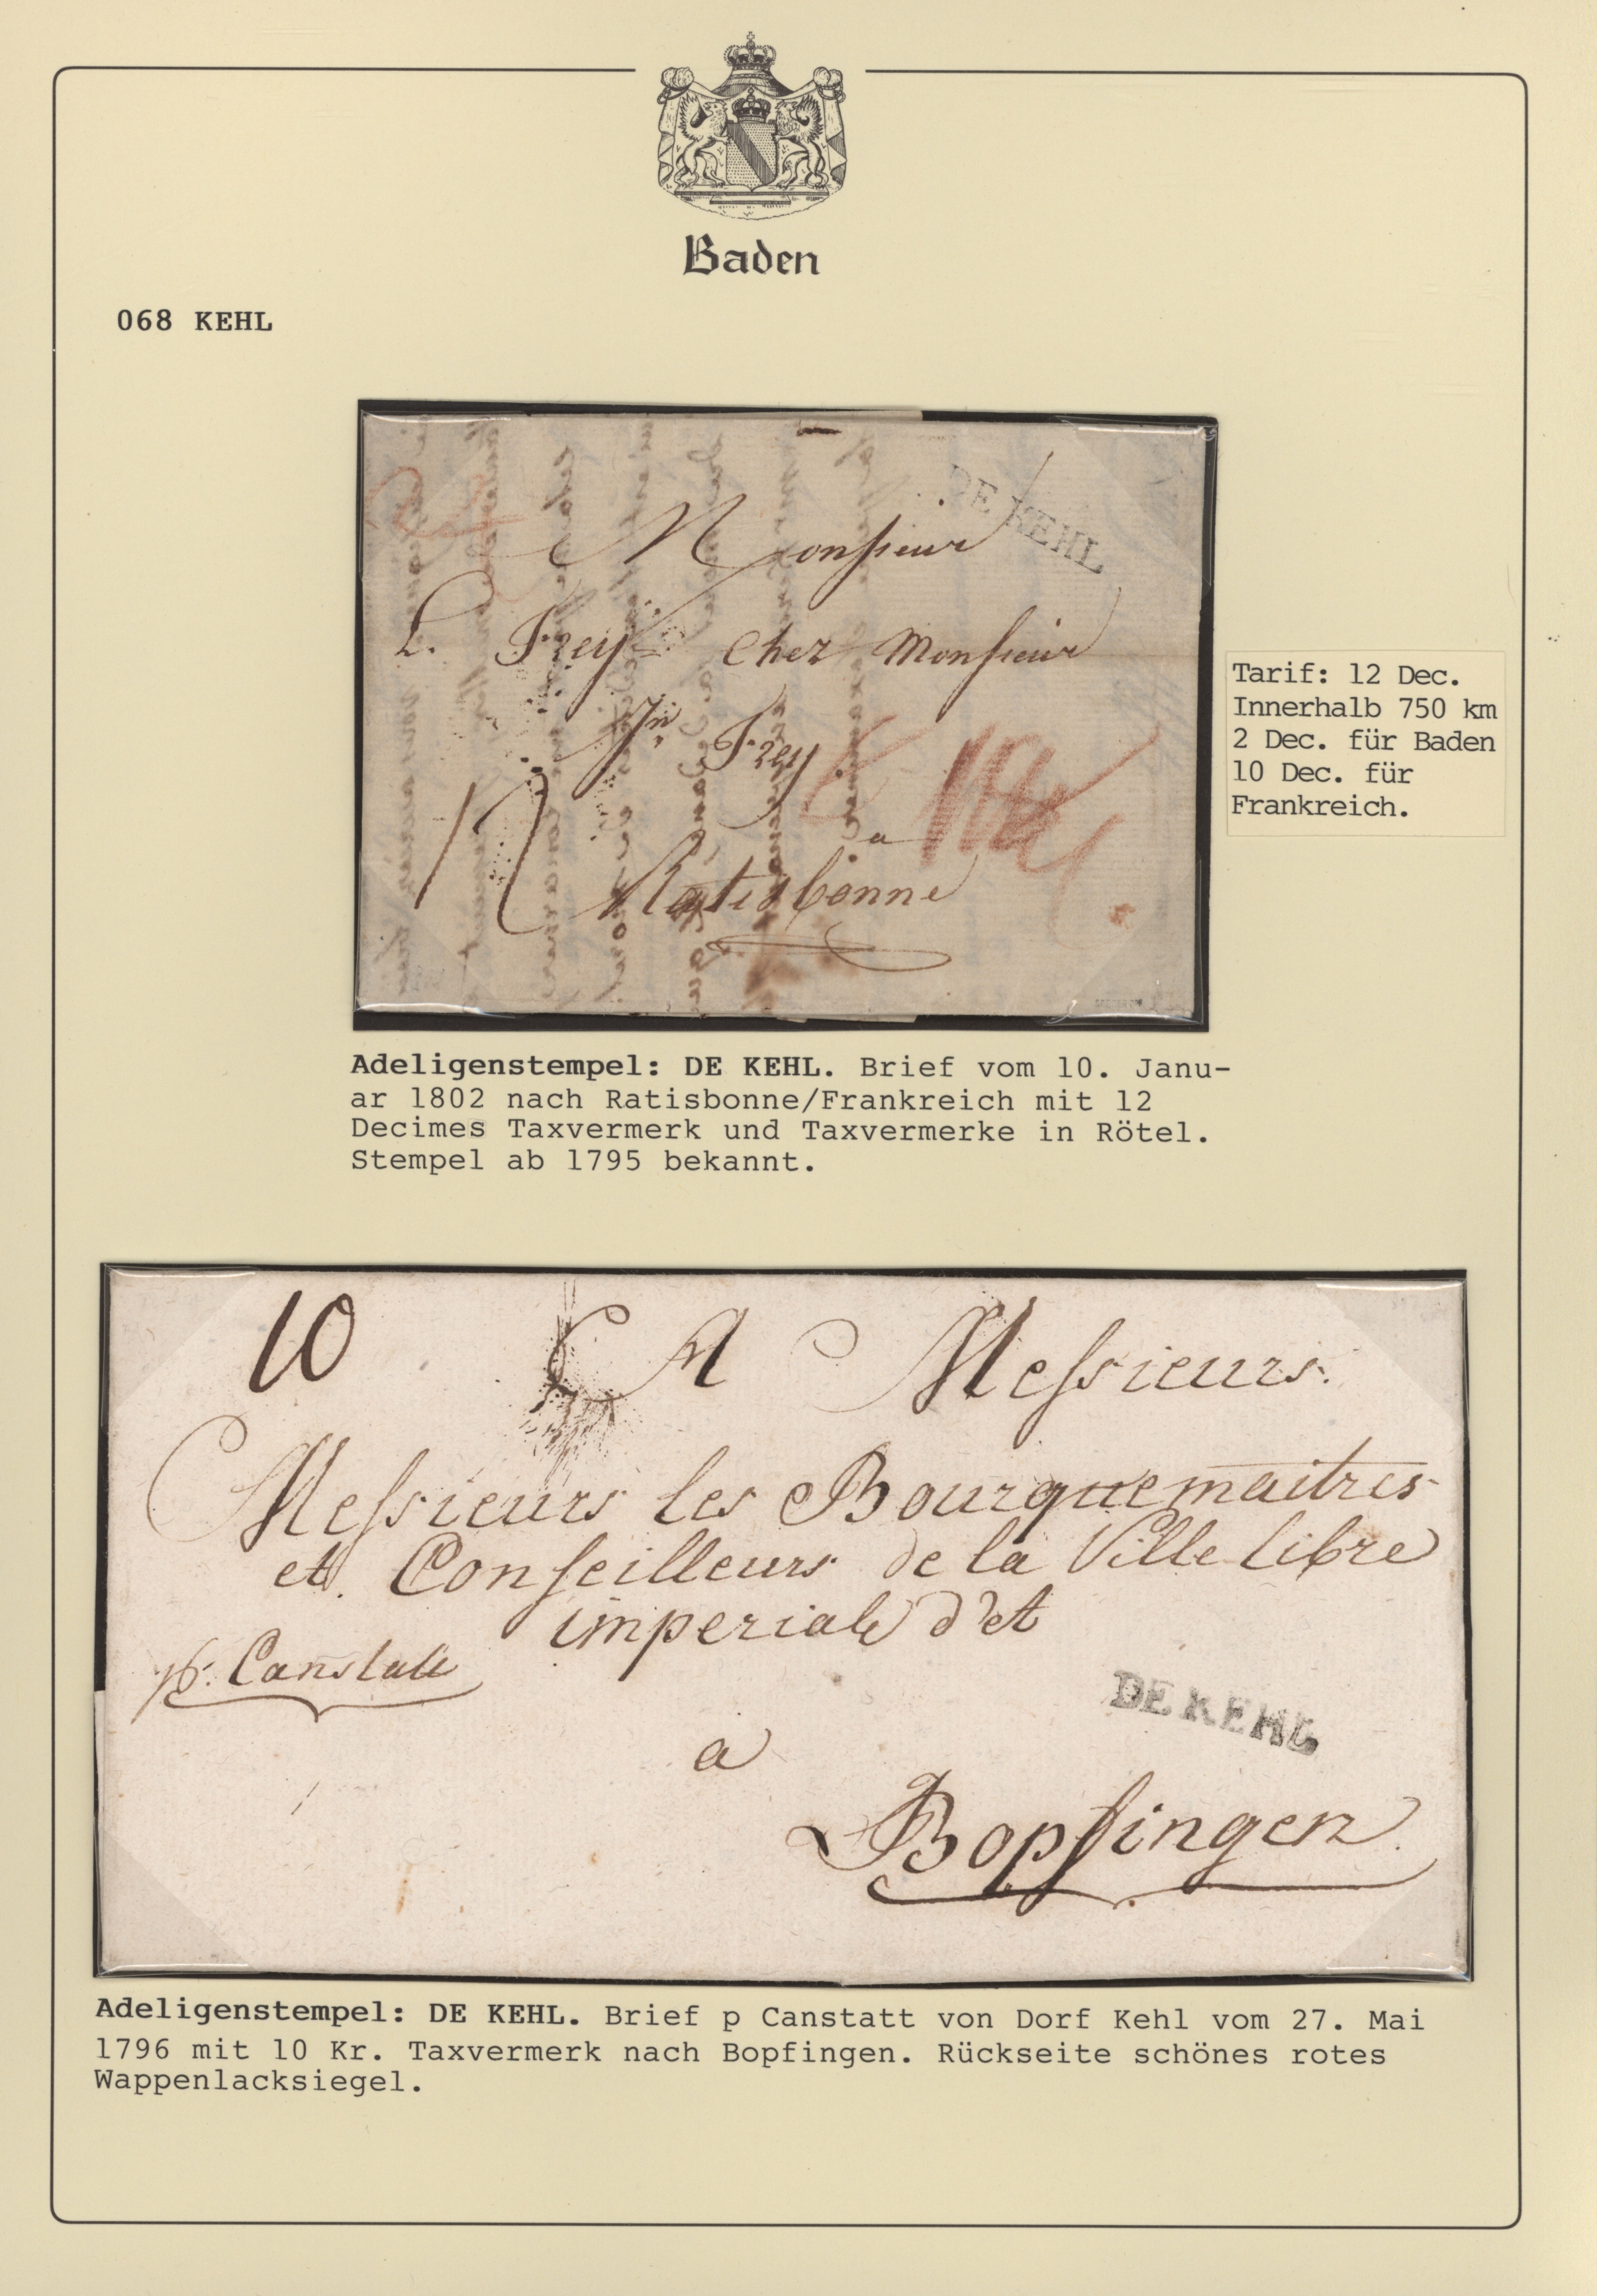 Baden
068 KEHL
DE KEHL
Monsieur
L. Frey chez Monsieur
Jn Frey
a
12
Ratisbonne
Tarif: 12 Dec.
Innerhalb 750 km
2 Dec. für Baden
10 Dec. für
Frankreich.
Adeligenstempel: DE KEHL. Brief vom 10. Janu-
ar 1802 nach Ratisbonne/Frankreich mit 12
Decimes Taxvermerk und Taxvermerke in Rötel.
Stempel ab 1795 bekannt.
10
A Messieurs.
Messieurs les Bourguemaitres
et Conseilleurs de la Ville libre
imperiale d'et
pr. Canstatt
DE KEHL
a
Bopfingen
Adeligenstempel: DE KEHL. Brief p Canstatt von Dorf Kehl vom 27. Mai
1796 mit 10 Kr. Taxvermerk nach Bopfingen. Rückseite schönes rotes
Wappenlacksiegel.